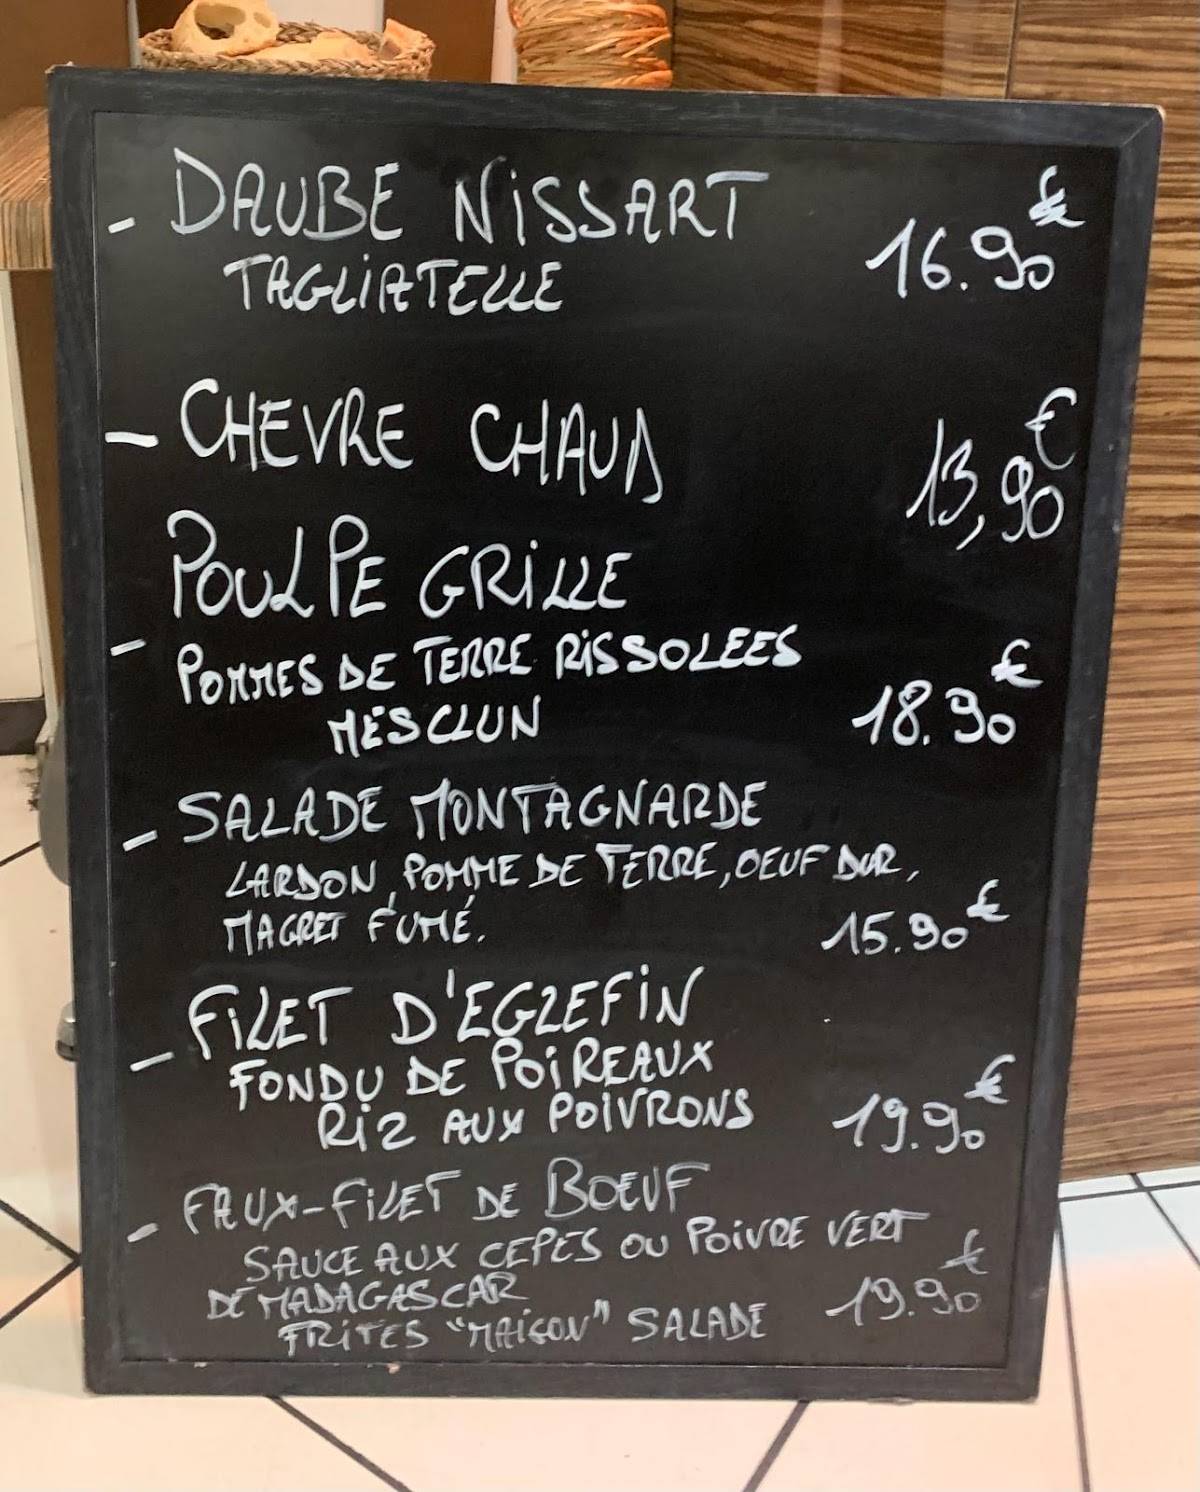 - DAUBE NiSSART
TAGLiATELLE 16.90€
- CHEVRE CHAUD 13,90€
POULPE GRiLLE
- POMMES DE TERRE RiSSOLEES
MESCLUN 18.90€
- SALADE MONTAGNARDE
LARDON, POMME DE TERRE, OEUF DUR,
MAGRET FUMÉ. 15.90€
- FiLET D'EGLEFiN
FONDU DE POiREAUX
RiZ AUX POiVRONS 19.90€
- FAUX-FiLET DE BOEUF
SAUCE AUX CEPES OU POiVRE VERT
DE MADAGASCAR 19.90€
FRiTES "MAiSON" SALADE